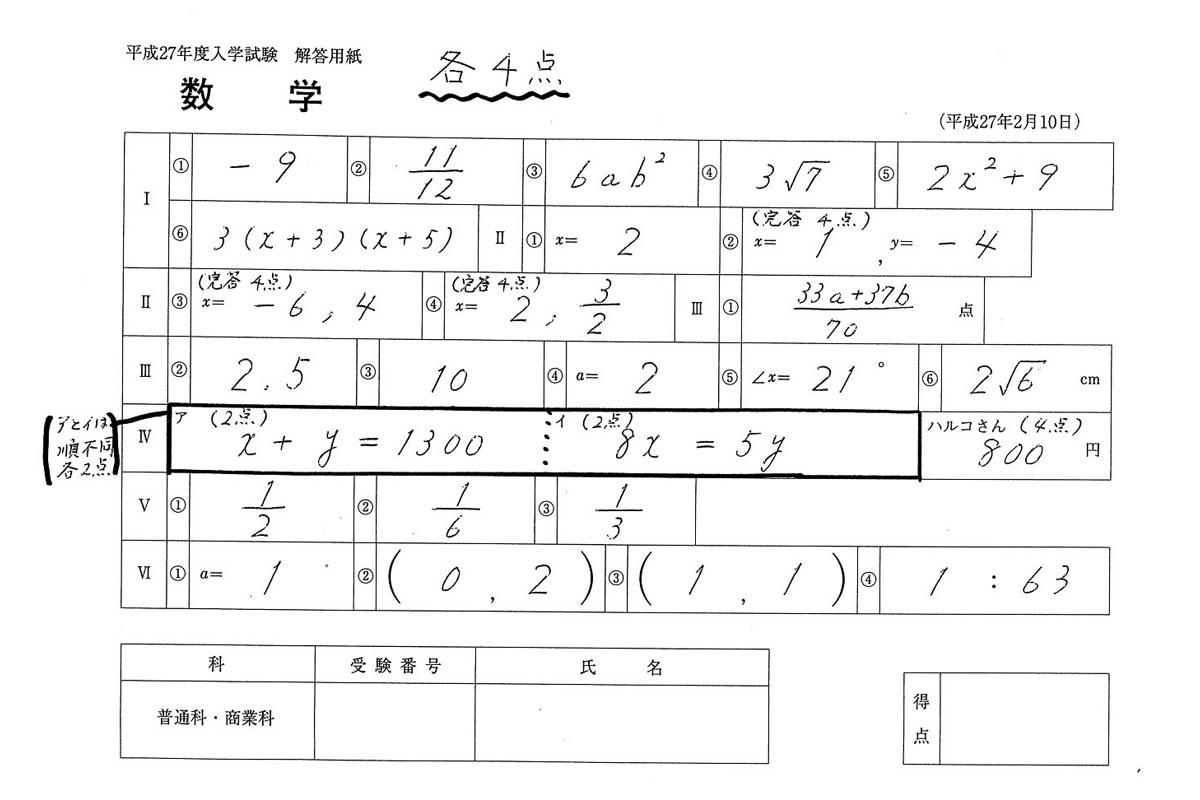 平成27年度入学試験 解答用紙
各4点
数 学
(平成27年2月10日)
I ① -9 ② 11/12 ③ 6ab² ④ 3√7 ⑤ 2x²+9
⑥ 3(x+3)(x+5) II ① x= 2 ② (完答 4点) x= 1 , y= -4
II ③ (完答 4点) x= -6, 4 ④ (完答 4点) x= 2, 3/2 III ① 33a+37b/70 点
III ② 2.5 ③ 10 ④ a= 2 ⑤ ∠x= 21° ⑥ 2√6 cm
(アとイは
順不同
各2点)
IV ア (2点) x+y=1300 イ (2点) 8x=5y ハルコさん (4点) 800 円
V ① 1/2 ② 1/6 ③ 1/3
VI ① a= 1 ② (0, 2) ③ (1, 1) ④ 1:63
科 受験番号 氏 名
普通科・商業科
得点